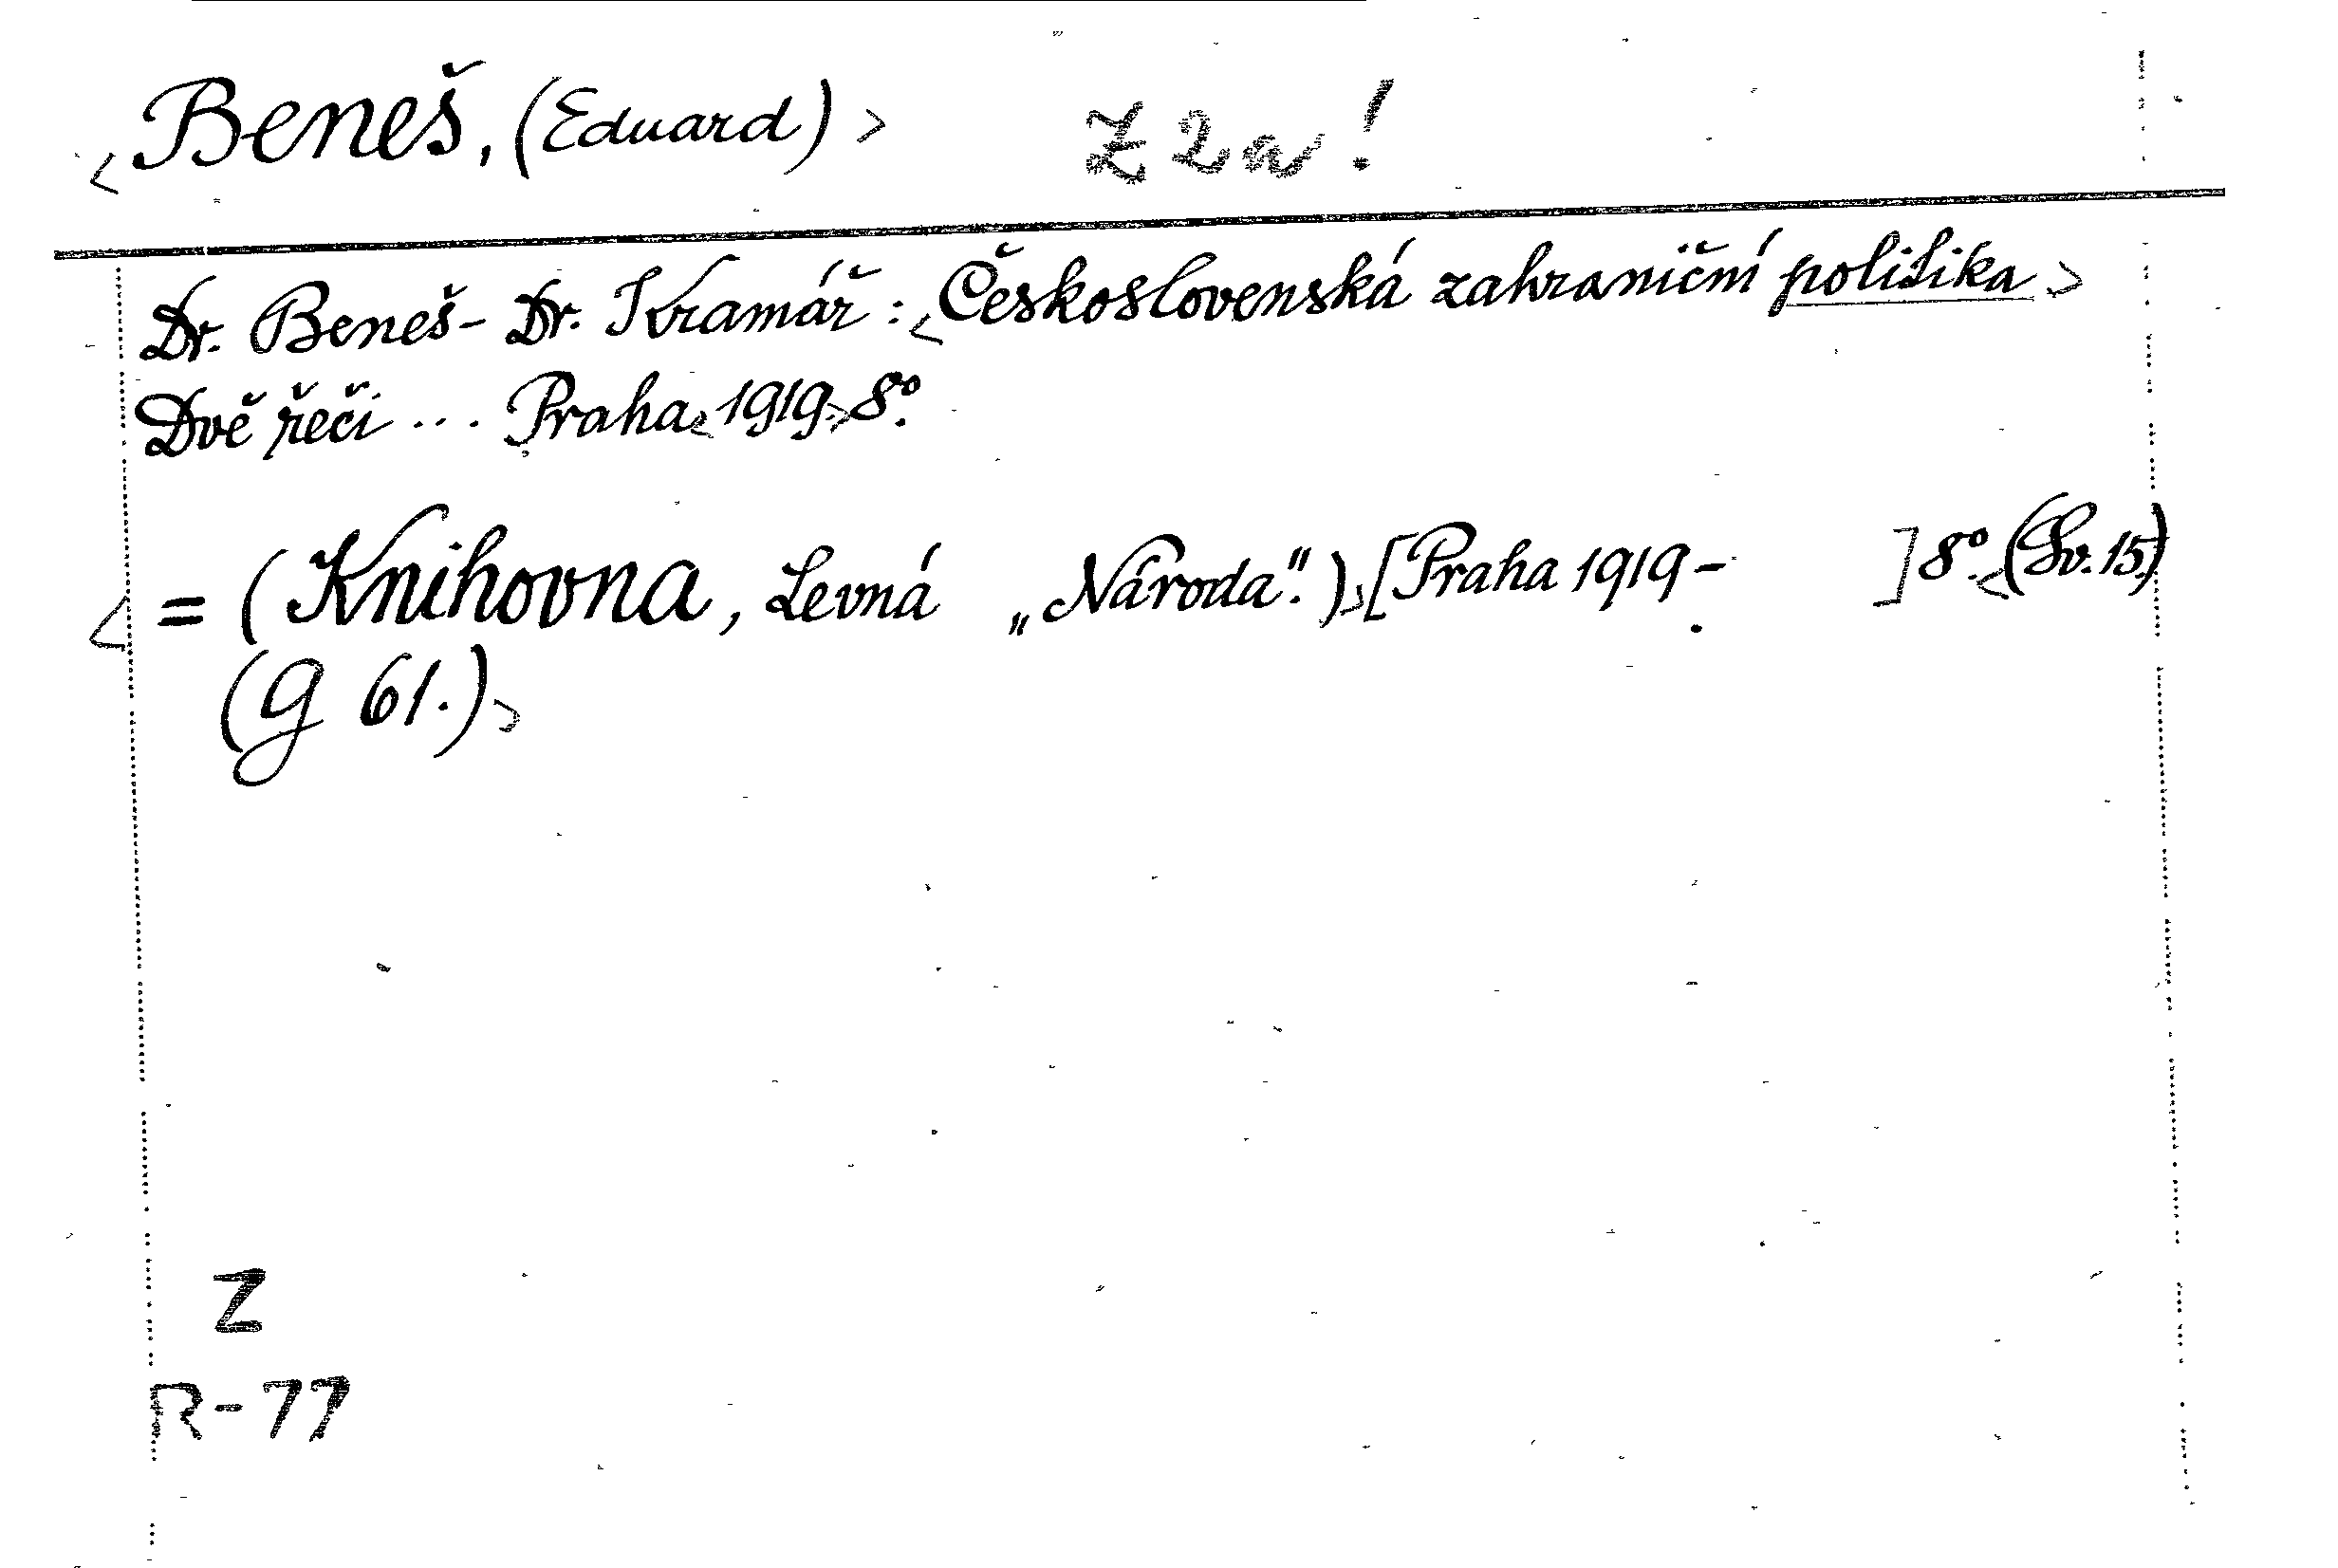 <Beneš, (Eduard)> Z 2a!
Dr. Beneš - Dr. Kramář: <Československá zahraniční politika>
Dvě řeči ... Praha <1919> 8º.
<= (Knihovna, Levná „Národa“.)> [Praha 1919 - ] 8º. <(Sv. 15.)
(G 61.)>
Z
R-77